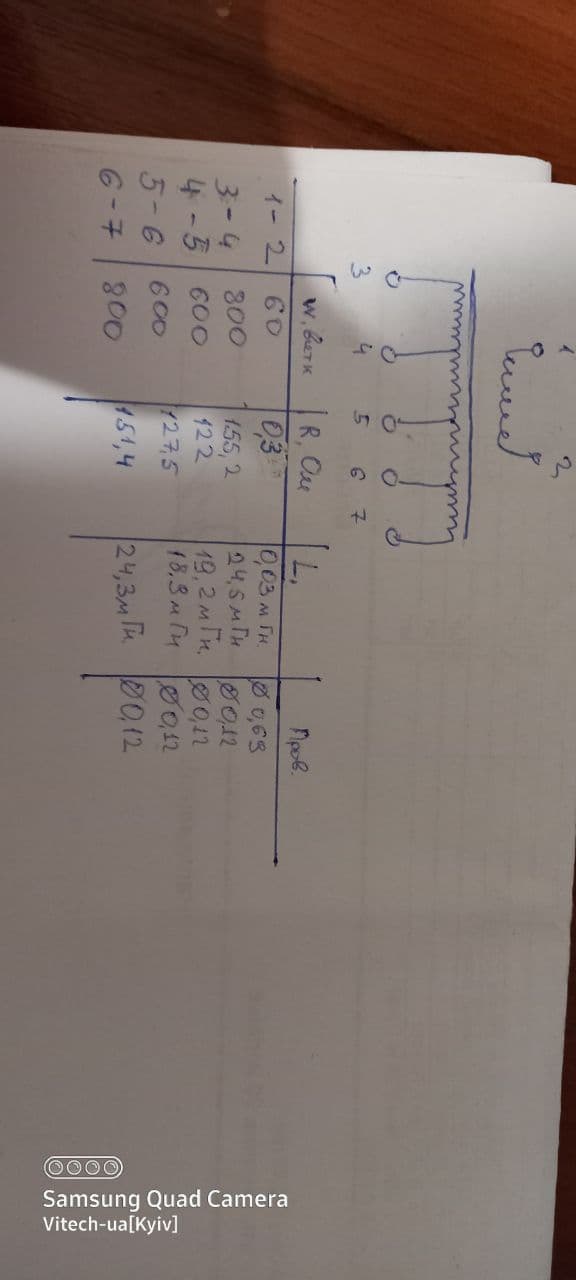 1 2
3 4 5 6 7
W, витк R, Ом L, Пров.
1-2 60 0,3 0,03 мГн. Ø 0,69
3-4 800 155,2 24,5 мГн Ø 0,12
4-5 600 122 19,2 мГн. Ø 0,12
5-6 600 127,5 18,9 мГн Ø 0,12
6-7 800 151,4 24,3 мГн Ø 0,12
Samsung Quad Camera
Vitech-ua[Kyiv]